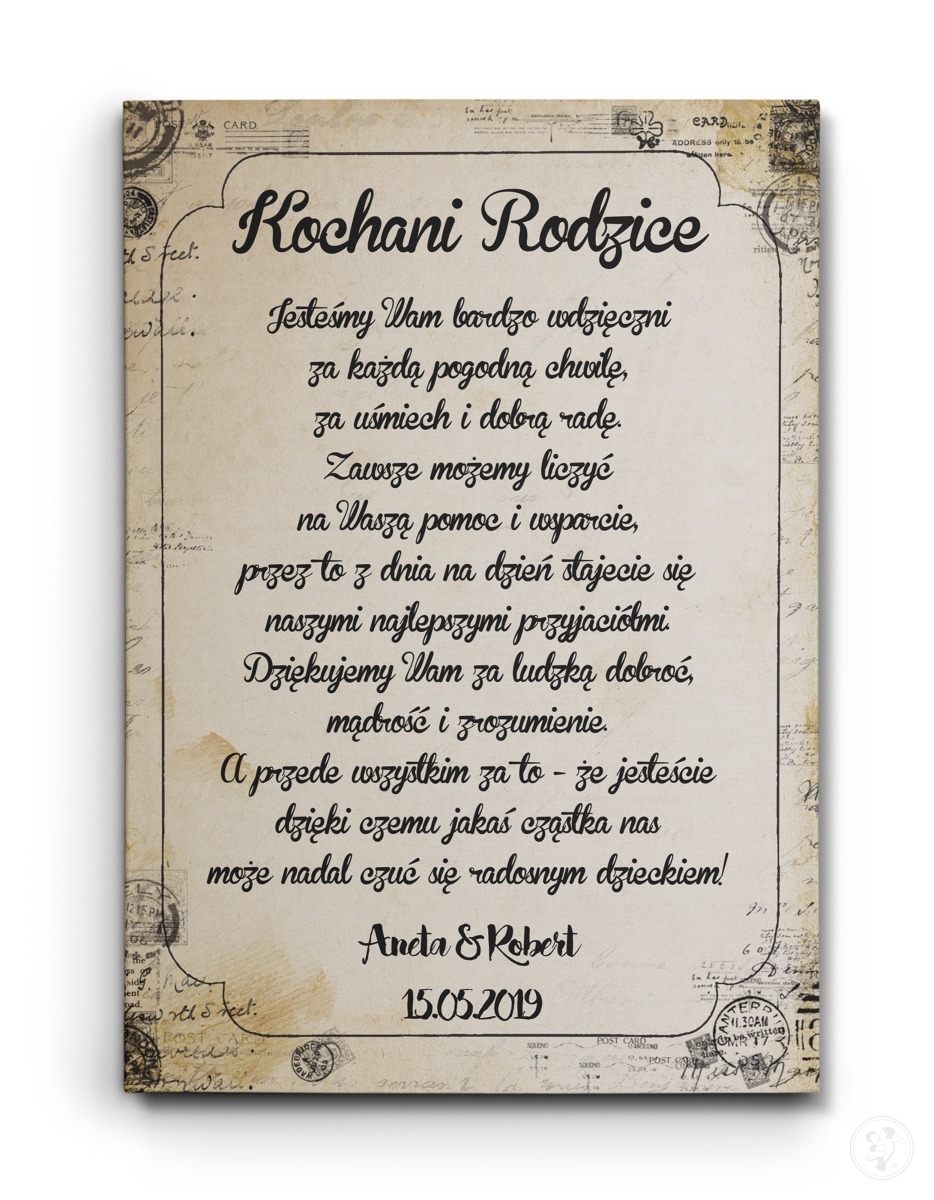 POST CARD
CARD
ADDRESS only to be
written here.
Kochani Rodzice
Jesteśmy Wam bardzo wdzięczni
za każdą pogodną chwilę,
za uśmiech i dobrą radę.
Zawsze możemy liczyć
na Waszą pomoc i wsparcie,
przez to z dnia na dzień stajecie się
naszymi najlepszymi przyjaciółmi.
Dziękujemy Wam za ludzką dobroć,
mądrość i zrozumienie.
A przede wszystkim za to - że jesteście
dzięki czemu jakaś cząstka nas
może nadal czuć się radosnym dzieckiem!
Aneta & Robert
15.05.2019
11.30AM
POST CARD
POST CARD
POST CARD